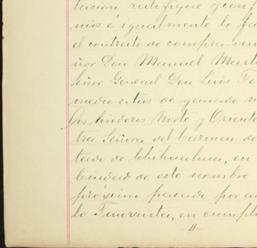 tacion ratifique y conf
mos é igualmente la
el contrato de compra-ven
ñor Don Manuel Mart
Señor General Don Luis Te
medio sitios de ganado m
los linderos Norte y Oriente
tra Señora del Carmen de
tado de Chihuahua, en
Ciudad de este nombre
próximo pasado por an
lo Irurueta, en cumpli